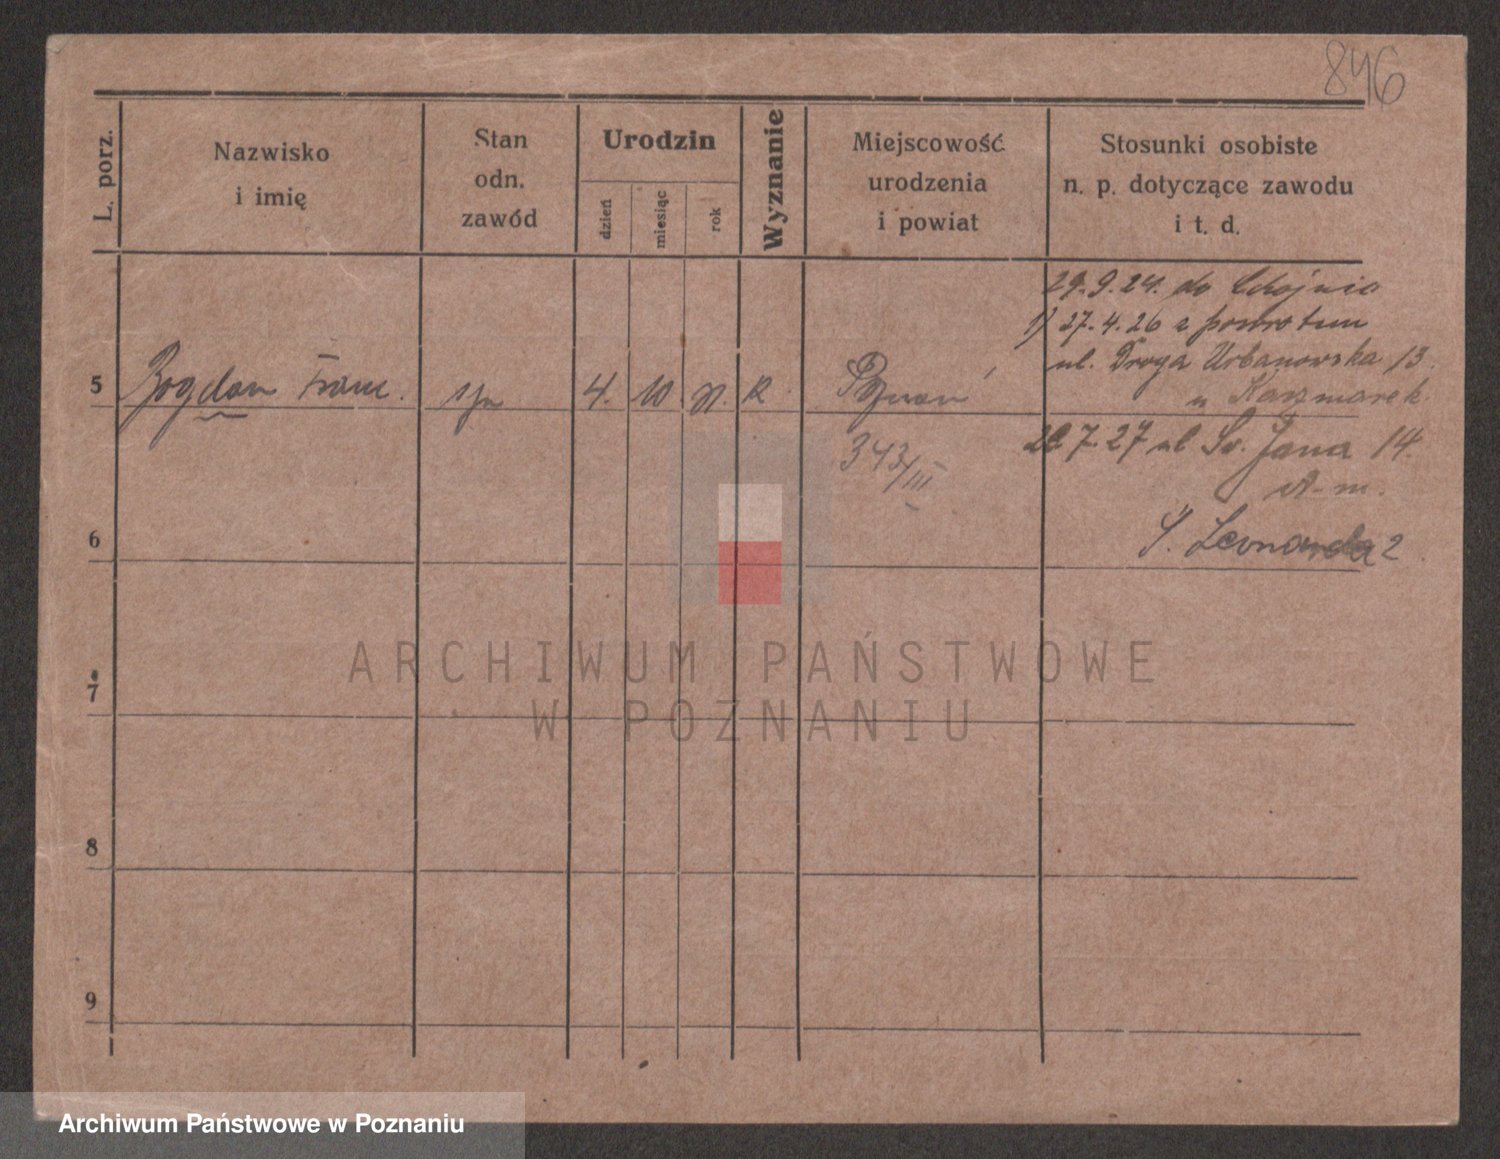 846
L. porz.
Nazwisko
i imię
Stan
odn.
zawód
Urodzin
dzień
miesiąc
rok
Wyznanie
Miejscowość
urodzenia
i powiat
Stosunki osobiste
n. p. dotyczące zawodu
i t. d.
29.9.24. do
1) 27.4.26 z powrotem
ul. Droga Urbanowska 13.
u Kaczmarek.
5
Bogdan Franc.
syn
4.
10
R.
Poznań
343/III
7.27 ul Św. Jana 14.
6
Leonarda 2
7
8
9
ARCHIWUM PAŃSTWOWE
W POZNANIU
Archiwum Państwowe w Poznaniu